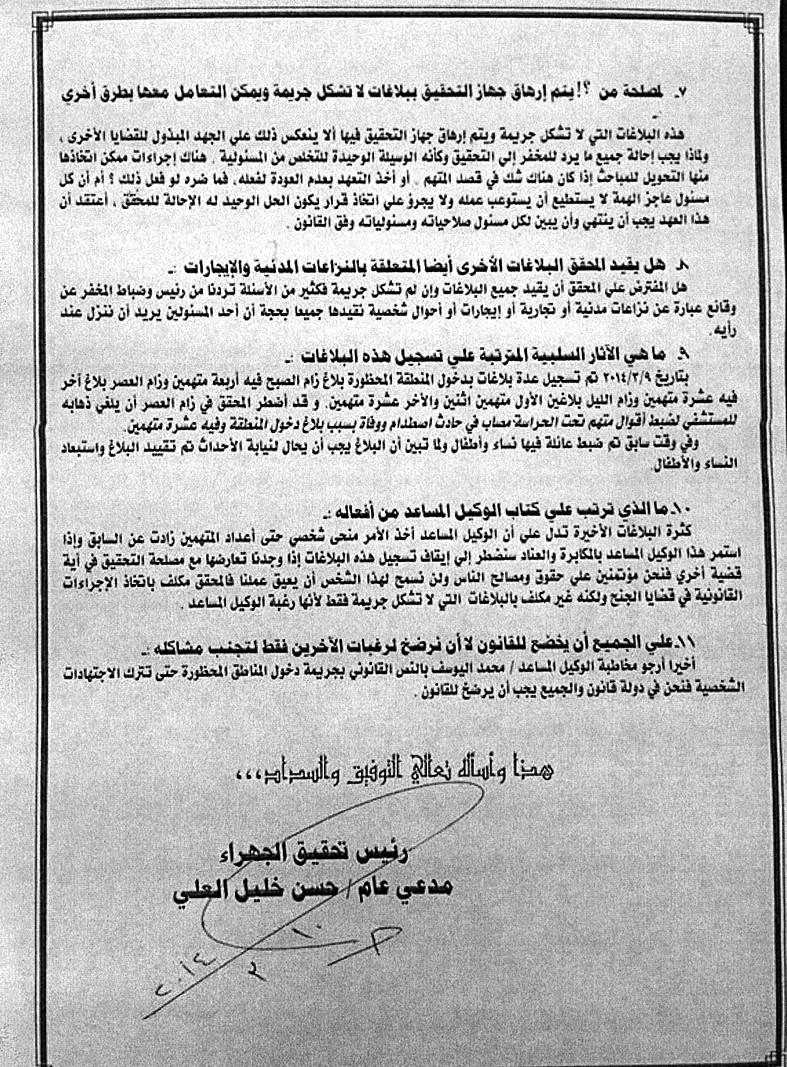 ٧ـ لمصلحة من ؟! يتم إرهاق جهاز التحقيق ببلاغات لا تشكل جريمة ويمكن التعامل معها بطرق أخري
ـ
هذه البلاغات التي لا تشكل جريمة ويتم إرهاق جهاز التحقيق فيها ألا ينعكس ذلك علي الجهد المبذول للقضايا الأخرى ،
ولماذا يجب إحالة جميع ما يرد للمخفر إلي التحقيق وكأنه الوسيلة الوحيدة للتخلص من المسئولية . هناك إجراءات ممكن اتخاذها
منها التحويل للمباحث إذا كان هناك شك في قصد المتهم . أو أخذ التعهد بعدم العودة لفعله، فما ضره لو فعل ذلك ؟ أم أن كل
مسئول عاجز الهمة لا يستطيع أن يستوعب عمله ولا يجرؤ علي اتخاذ قرار يكون الحل الوحيد له الإحالة للمحقق ، أعتقد أن
هذا العهد يجب أن ينتهي وأن يبين لكل مسئول صلاحياته ومسئولياته وفق القانون .
٨ـ هل يقيد المحقق البلاغات الأخرى أيضا المتعلقة بالنزاعات المدنية والإيجارات :ـ
هل المفترض علي المحقق أن يقيد جميع البلاغات وإن لم تشكل جريمة فكثير من الأسئلة تردنا من رئيس وضباط المخفر عن
وقائع عبارة عن نزاعات مدنية أو تجارية أو إيجارات أو أحوال شخصية نقيدها جميعا بحجة أن أحد المسئولين يريد أن ننزل عند
رأيه.
٩ـ ما هي الآثار السلبية المترتبة علي تسجيل هذه البلاغات :ـ
بتاريخ ٢٠١٤/٣/٩ تم تسجيل عدة بلاغات بدخول المنطقة المحظورة بلاغ زام الصبح فيه أربعة متهمين وزام العصر بلاغ آخر
فيه عشرة متهمين وزام الليل بلاغين الأول متهمين اثنين والأخر عشرة متهمين. و قد أضطر المحقق في زام العصر أن يلغي ذهابه
للمستشفي لضبط أقوال متهم تحت الحراسة مصاب في حادث اصطدام ووفاة بسبب بلاغ دخول المنطقة وفيه عشرة متهمين.
وفي وقت سابق تم ضبط عائلة فيها نساء وأطفال ولما تبين أن البلاغ يجب أن يحال لنيابة الأحداث تم تقييد البلاغ واستبعاد
النساء والأطفال.
١٠ـ ما الذي ترتب علي كتاب الوكيل المساعد من أفعاله :ـ
كثرة البلاغات الأخيرة تدل علي أن الوكيل المساعد أخذ الأمر منحى شخصي حتى أعداد المتهمين زادت عن السابق وإذا
استمر هذا الوكيل المساعد بالمكابرة والعناد سنضطر إلي إيقاف تسجيل هذه البلاغات إذا وجدنا تعارضها مع مصلحة التحقيق في أية
قضية أخري فنحن مؤتمنين علي حقوق ومصالح الناس ولن نسمح لهذا الشخص أن يعيق عملنا فالمحقق مكلف باتخاذ الإجراءات
القانونية في قضايا الجنح ولكنه غير مكلف بالبلاغات التي لا تشكل جريمة فقط لأنها رغبة الوكيل المساعد .
١١ـ علي الجميع أن يخضع للقانون لا أن نرضخ لرغبات الآخرين فقط لتجنب مشاكله :ـ
أخيرا أرجو مخاطبة الوكيل المساعد / محمد اليوسف بالنص القانوني بجريمة دخول المناطق المحظورة حتى تترك الاجتهادات
الشخصية فنحن في دولة قانون والجميع يجب أن يرضخ للقانون .
هذا وأسأله تعالي التوفيق والسداد،،،
رئيس تحقيق الجهراء
مدعي عام / حسن خليل العلي
١٠
٣
٢٠١٤